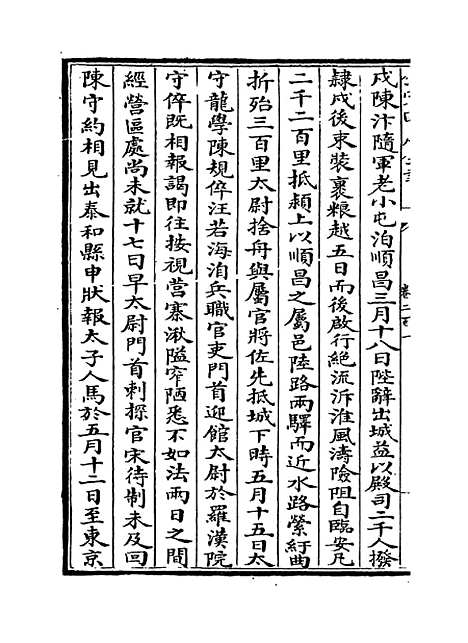 戍陳汴隨軍老小屯泊順昌三月十八日陛辭出城益以殿司二千人撥
隸戍後束裝裹糧越五日而後啟行絶流泝淮風濤險阻自臨安凡
二千二百里抵潁上以順昌之屬邑陸路兩驛而近水路縈紆曲
折殆三百里太尉捨舟與屬官將佐先抵城下時五月十五日太
守龍學陳規倅汪若海洎兵職官吏門首迎館太尉於羅漢院
守倅既相報謁即往按視營寨湫隘窄陋悉不如法兩日之間
經營區處尚未就十七日早太尉門首刺探官宋待制未及回
陳守約相見出泰和縣申狀報太子人馬於五月十二日至東京
卷二百一